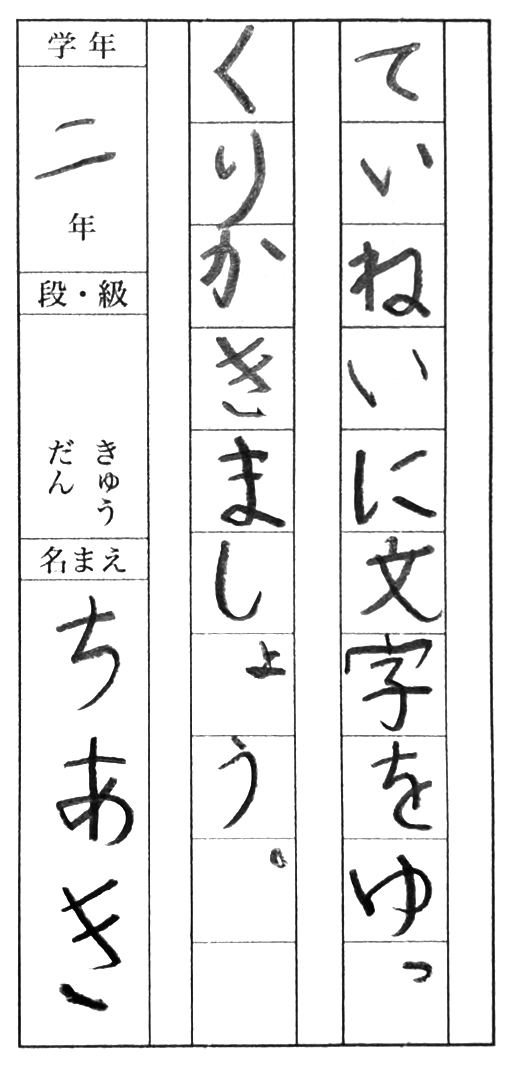 ていねいに文字をゆっ
くりかきましょう。
学年
二
年
段・級
きゅう
だん
名まえ
ちあき